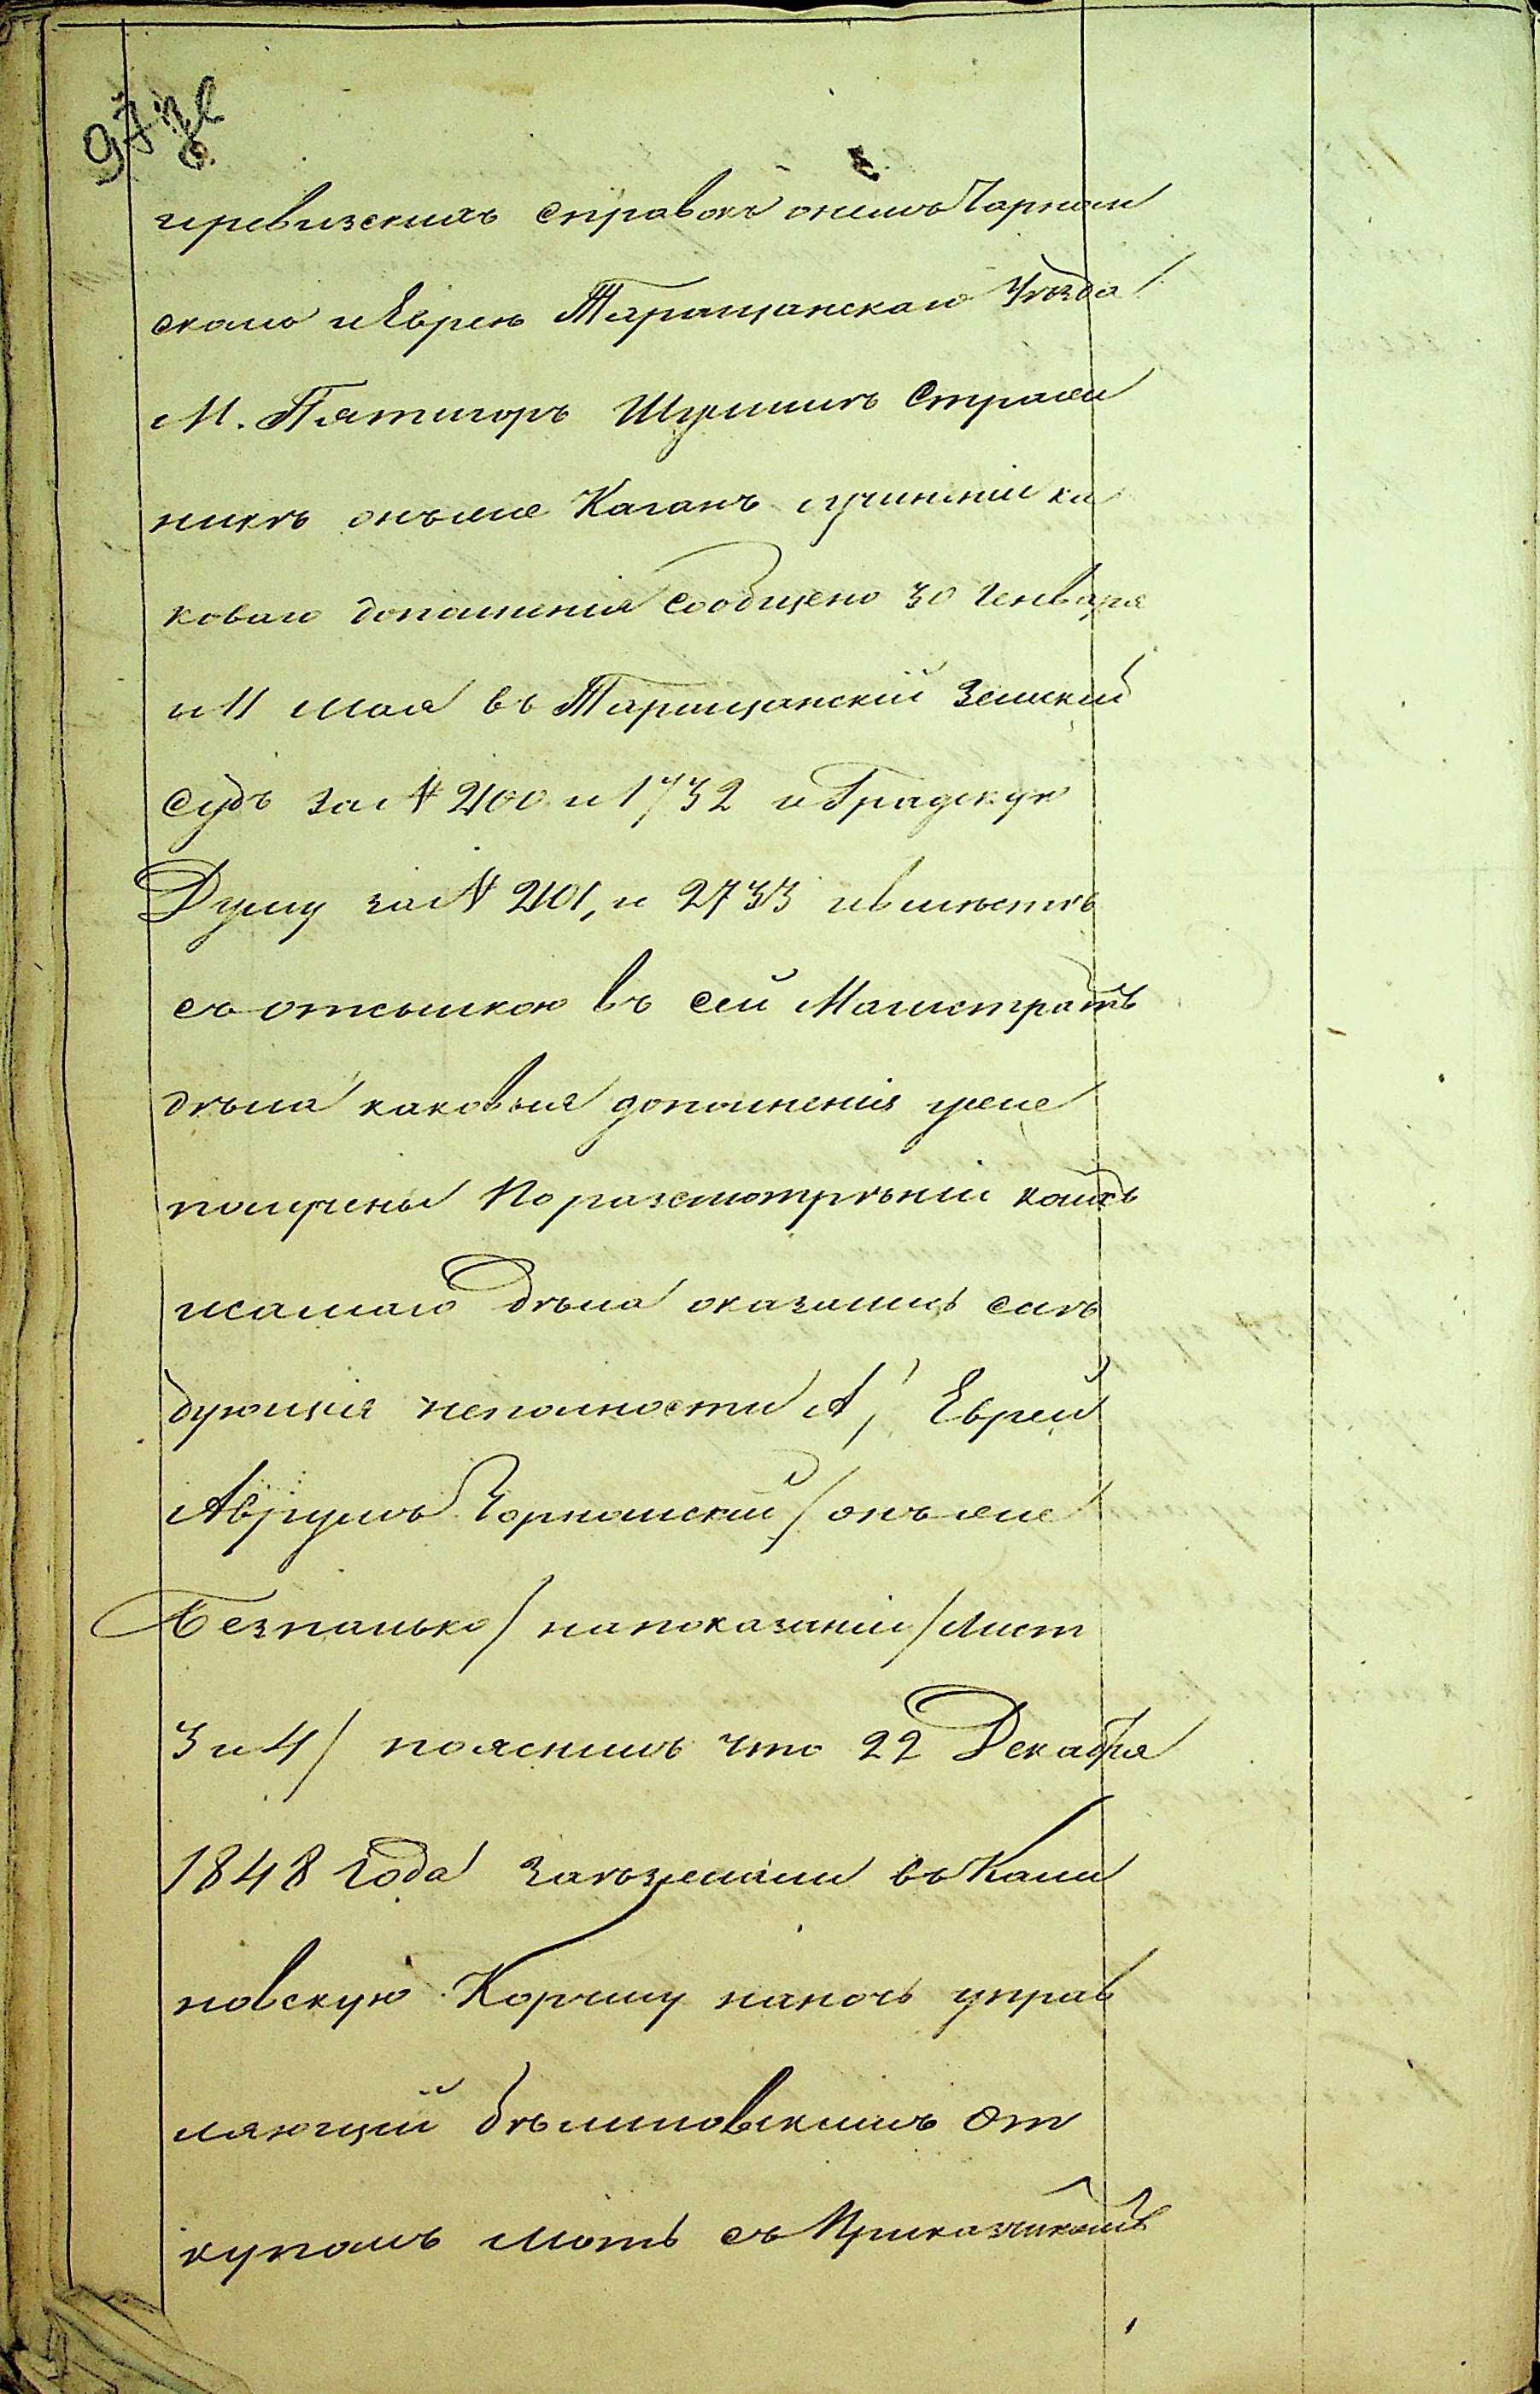 и ревизскихъ справокъ онемъ Чарном
скомъ и Еврею Таращанскаго Уѣзда
М. Пятигоръ Шулимѣ Стражи
никѣ онъ же Каганъ о учиненіи ка
коваго дополненія сообщено 30 Генваря
и 11 мая въ Таращанскій Земскій
Судъ за № 200 и 1732 и Градскую
Думу за № 201, и 2733 и вмѣстѣ
съ отсылкою въ сей Магистратъ
дѣла каковыя дополненія уже
получены По разсмотрѣніи коихъ
и самаго дѣла оказались слѣ
дующія неполности А/ Еврей
Аврумъ Чорномскій / онъ же
Безпалько / на показаніи / Лист
3 и 4 / пояснилъ что 22 Декабря
1848 года заѣзжали въ Кали
новскую Корчму на ночь управ
ляющій бѣлиловскимъ От
купомъ Мотъ съ Приказчикомъ